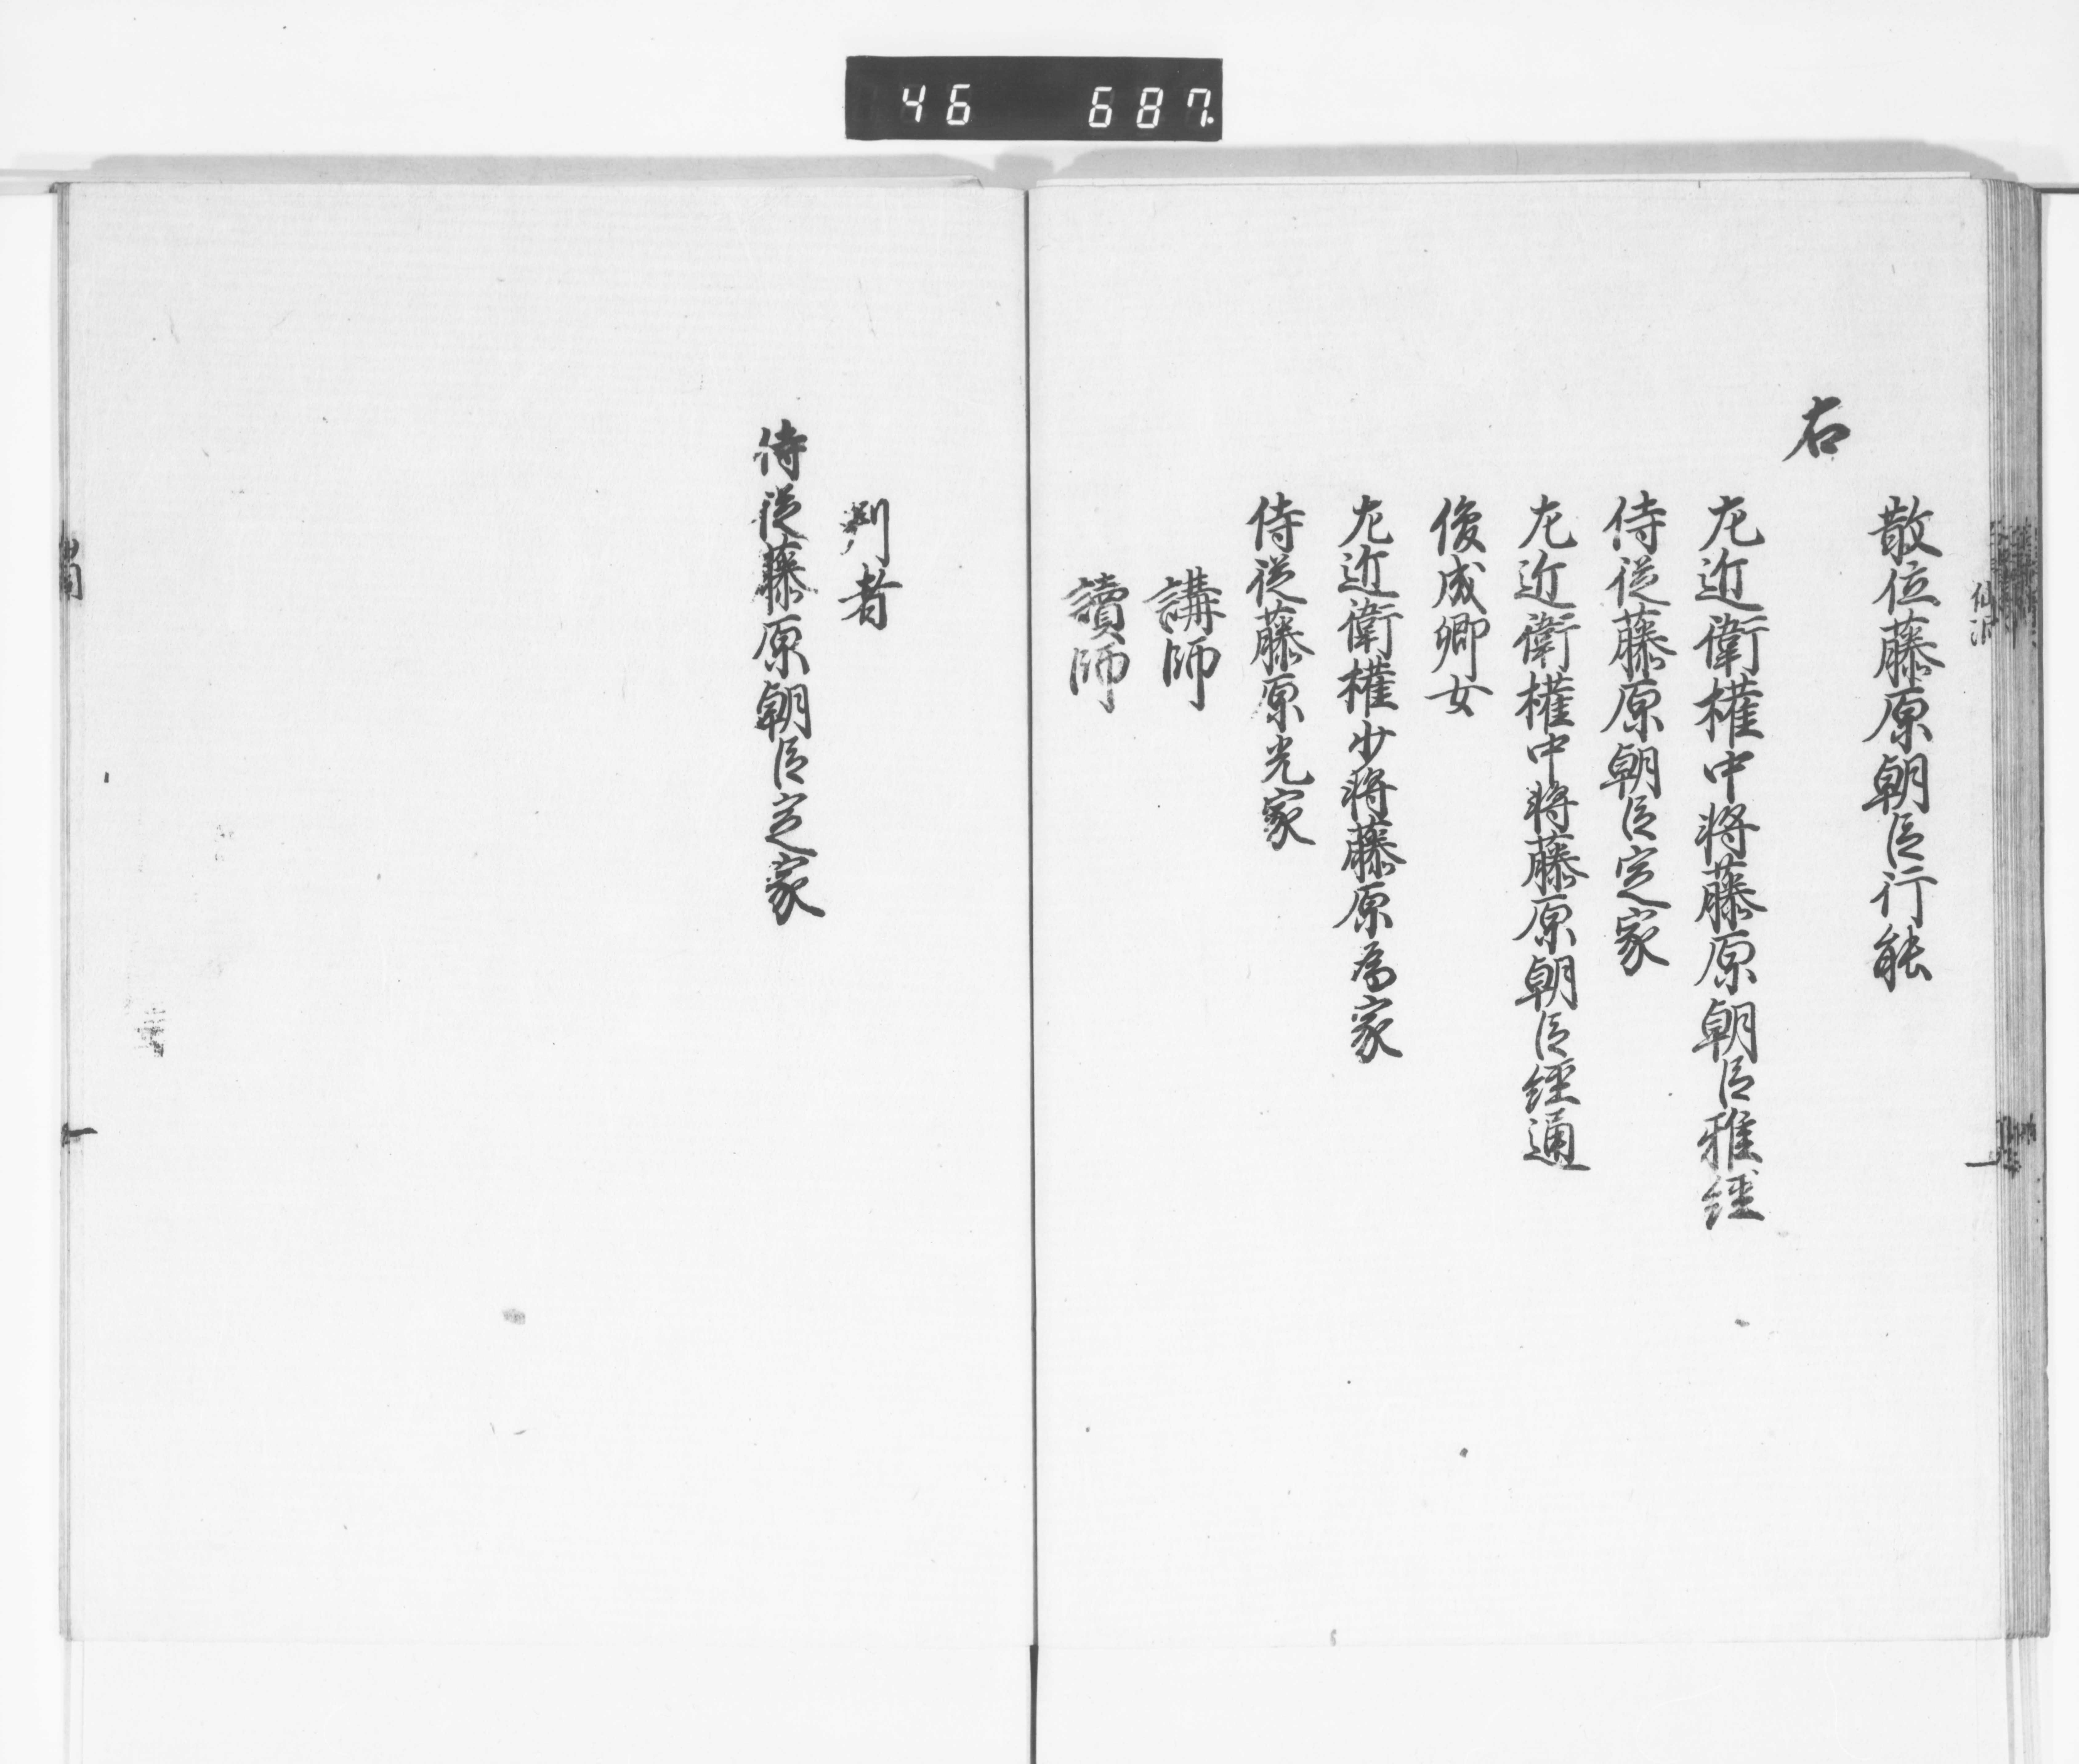 46 687
散位藤原朝臣行能
右
左近衛権中将藤原朝臣雅経
侍従藤原朝臣定家
左近衛権中将藤原朝臣経通
俊成卿女
左近衛権少将藤原為家
侍従藤原光家
講師
讀師
判者
侍従藤原朝臣定家